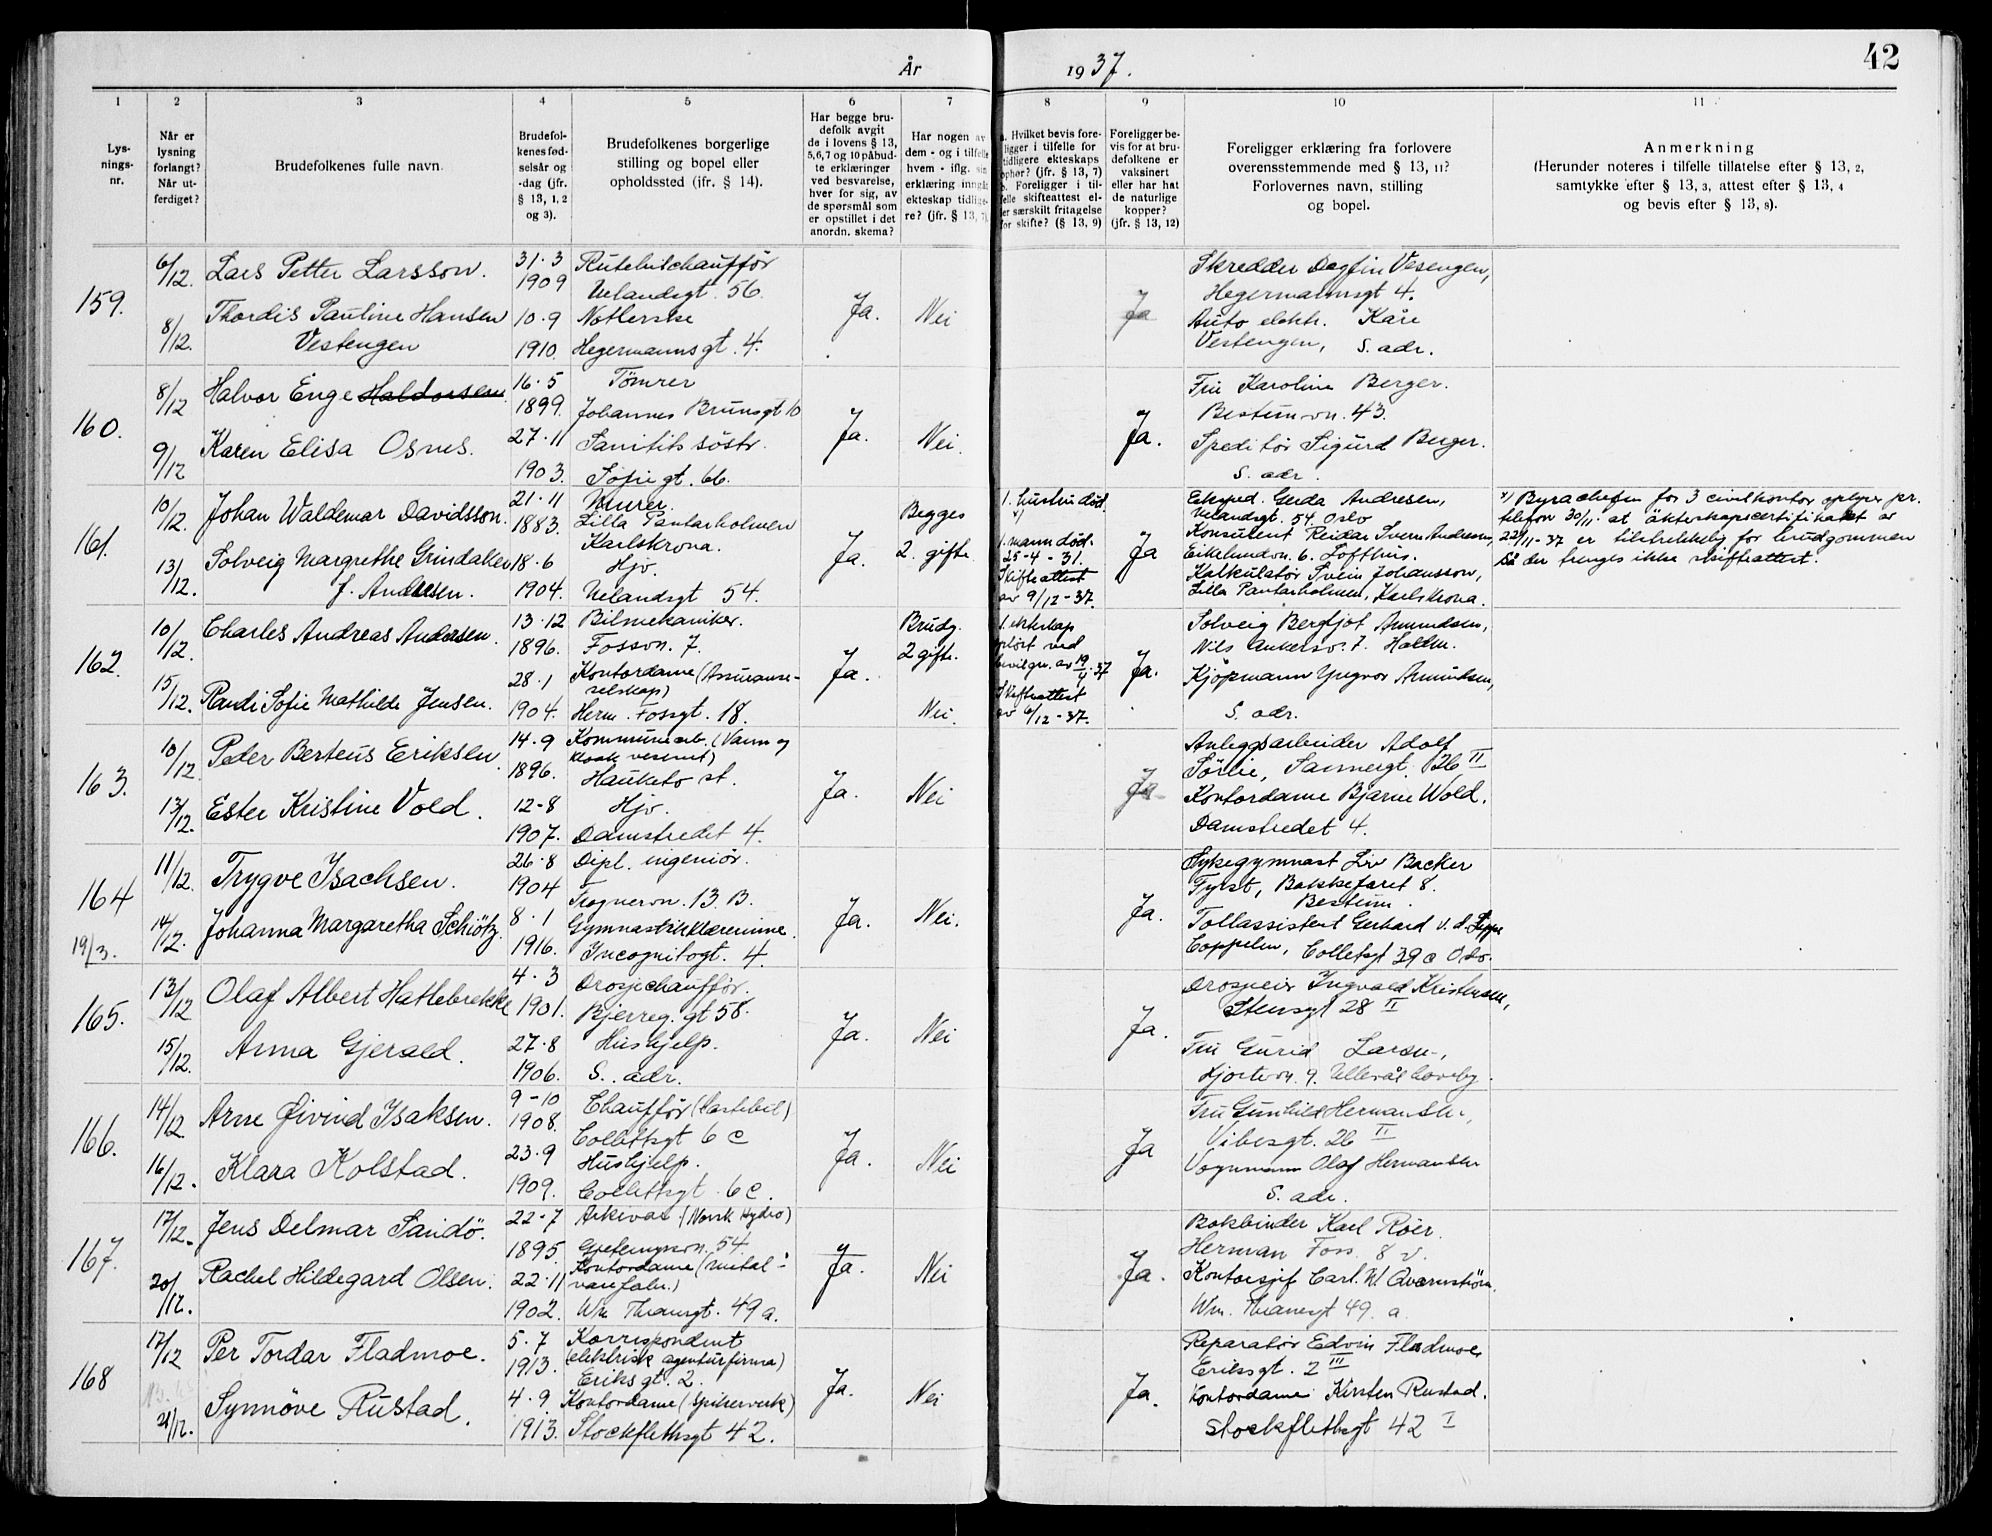 År 1937.
42
1 2 3 4 5 6 7 8 9 10 11
Lys-
nings-
nr.
Når er
lysning
forlangt?
Når ut-
ferdiget?
Brudefolkenes fulle navn.
Brudefol-
kenes fød-
selsår og
-dag (jfr.
§ 13, 1, 2
og 3).
Brudefolkenes borgerlige
stilling og bopel eller
opholdssted (jfr. § 14).
Har begge bru-
defolk avgit
de i lovens § 13,
5,6,7 og 10 påbud-
te erklæringer
ved besvarelse,
hver for sig, av
de spørsmål som
er opstillet i det
anordn. skema?
Har nogen av
dem - og i tilfelle
hvem - iflg. sin
erklæring inngåt
ekteskap tidlige-
re? (jfr. § 13, 7)
a. Hvilket bevis fore-
ligger i tilfelle for
tidligere ekteskaps
ophør? (jfr. § 13, 7)
b. Foreligger i til-
felle skifteattest el-
ler særskilt fritagelse
for skifte? (§ 13, 9)
Foreligger be-
vis for at bru-
defolkene er
vaksinert
eller har hat
de naturlige
kopper?
(jfr. § 13, 12)
Foreligger erklæring fra forlovere
overensstemmende med § 13, 11?
Forlovernes navn, stilling
og bopel.
Anmerkning
(Herunder noteres i tilfelle tillatelse efter § 13, 2,
samtykke efter § 13, 3, attest efter § 13, 4
og bevis efter § 13, 8).
159.
6/12.
8/12.
Lars Petter Larsson.
Thordis Pauline Hansen
Vestengen
31·3
1909
10·9
1910.
Rutebilchauffør
Uelandsgt. 56.
Notlerske
Hegermannsgt. 4.
Ja.
Nei
Ja
Skredder Dagfin Vesengen,
Hegermannsgt 4.
Auto elektr. Kåre
Vestengen, S. adr.
160.
8/12
9/12
Halvor Enge Haldorsen.
Karen Elisa Osnes.
16·5
1899.
27·11
1903.
Tømrer
Johannes Brunsgt 10
Sanitits søstr.
Sofie gt. 66.
Ja.
Nei.
Ja.
Fru Karoline Berger.
Bestumvn. 43.
Speditør Sigurd Berger.
S. adr.
161.
10/12.
13/12.
Johan Waldemar Davidsson.
Solveig Margrethe Grindaker
f. Andresen.
21·11
1883.
18·6
1904.
Murer.
Lilla Pantarholmen
Karlskrona.
Hjv.
Uelandsgt 54.
Ja.
Begges
2. gifte
1. hustru død.
x)
1. mann død.
25-4-31.
Skifteattest
av 9/12-37.
Ja
Eksped. Gerda Andresen,
Uelandsgt. 54. Oslo
Konsulent Reidar Sven Andresen,
Eikelundvn. 6. Lofthus.
Kalkulatør Svein Johansson,
Lilla Pantarholmen, Karlskrona.
x) Byråchefen for 3 civilkontor oplyser pr.
telefon 30/11. at äkteskapscertifikatet av
22/11-37 er tilstrekkelig for brudgommen
så der trenges ikke skifteattest.
162.
10/12.
15/12.
Charles Andreas Andersen.
Randi Sofie Mathilde Jensen.
13·12
1896.
28·1
1904.
Bilmekaniker.
Fossvn. 7.
Kontordame (Assuranse-
selskap)
Herm. Fossgt. 18.
Ja.
Brudg.
2 gifte.
Nei.
1. ekteskap
opløst ved
bevilgn. av 19/4·37
Skifteattest
av 6/12-37.
Ja.
Solveig Bergljot Amundsen,
Nils Ankersv. 7. Holm.
Kjøpmann Yngvar Amundsen,
S. adr.
163.
10/12.
13/12.
Peder Berteus Eriksen.
Ester Kristine Vold.
14·9
1896.
12-8
1907.
Kommunearb. (Vann og
kloak vesenet)
Hauketo st.
Hjv.
Damstredet 4.
Ja.
Nei
Ja.
Anleggsarbeider Adolf
Sørlie, Sannergt. 26 II
Kontordame Bjarne Wold.
Damstredet 4.
164
19/3.
11/12.
14/12.
Trygve Isachsen.
Johanna Margaretha Schiötz.
26·8
1904
8·1
1916.
Dipl. ingeniør.
Frognervn. 13. B.
Gymnastikklærerinne.
Incognitogt. 4.
Ja.
Nei.
Ja.
Sykegymnast Liv Backer
Fyrst, Bakkefaret 8.
Bestum.
Tollassistent Gerhard v. d. Lippe
Coppelen, Colletsgt 39c Oslo.
165.
13/12
15/12.
Olaf Albert Hatlebrekke
Anna Gjerald.
4·3
1901.
27·8
1906.
Drosjechauffør.
Bjerreg. gt 58.
Hushjelp.
S. adr.
Ja.
Nei
Ja.
Drosjeeier Ingvald Kristensen,
Stensgt 28 II
Fru Gurid Larsen,
Hjortevn. 9. Ullevål haveby.
166.
14/12
16/12.
Arne Øivind Isaksen.
Klara Kolstad.
9-10
1908.
23·9
1909.
Chauffør (lastebil)
Collettsgt 6 c
Hushjelp.
Collettsgt. 6 c.
Ja.
Nei
Ja
Fru Gunhild Hermansen,
Vibesgt. 26 II
Vognmann Olaf Hermansen
S. adr.
167.
17/12.
20/12.
Jens Delmar Sandö.
Rachel Hildegard Olsen.
22-7
1895
22·11
1902.
Arkivar. (Norsk Hydro)
Gjetemyrsvn. 54
Kontordame (metal-
varefabr.)
Wm Thranesgt. 49 a.
Ja.
Nei
Ja.
Bokbinder Karl Röer.
Herman Foss. 8 v.
Kontorsjef Carl. W. Qvarnström
Wm. Thranesgt 49. a
168
17/12
21/12.
Per Tordar Fladmoe.
Synnöve Rustad.
5·7
1913.
4·9.
1913.
Korrespondent
(elektrisk agenturfirma)
Eriksgt. 2.
Kontordame (Spikerverk)
Stockflethsgt 42.
Ja.
Nei
Ja.
Reparatør Edvin Fladmoe
Eriksgt. 2 III
Kontordame Kirsten Rustad.
Stockflethsgt 42 I